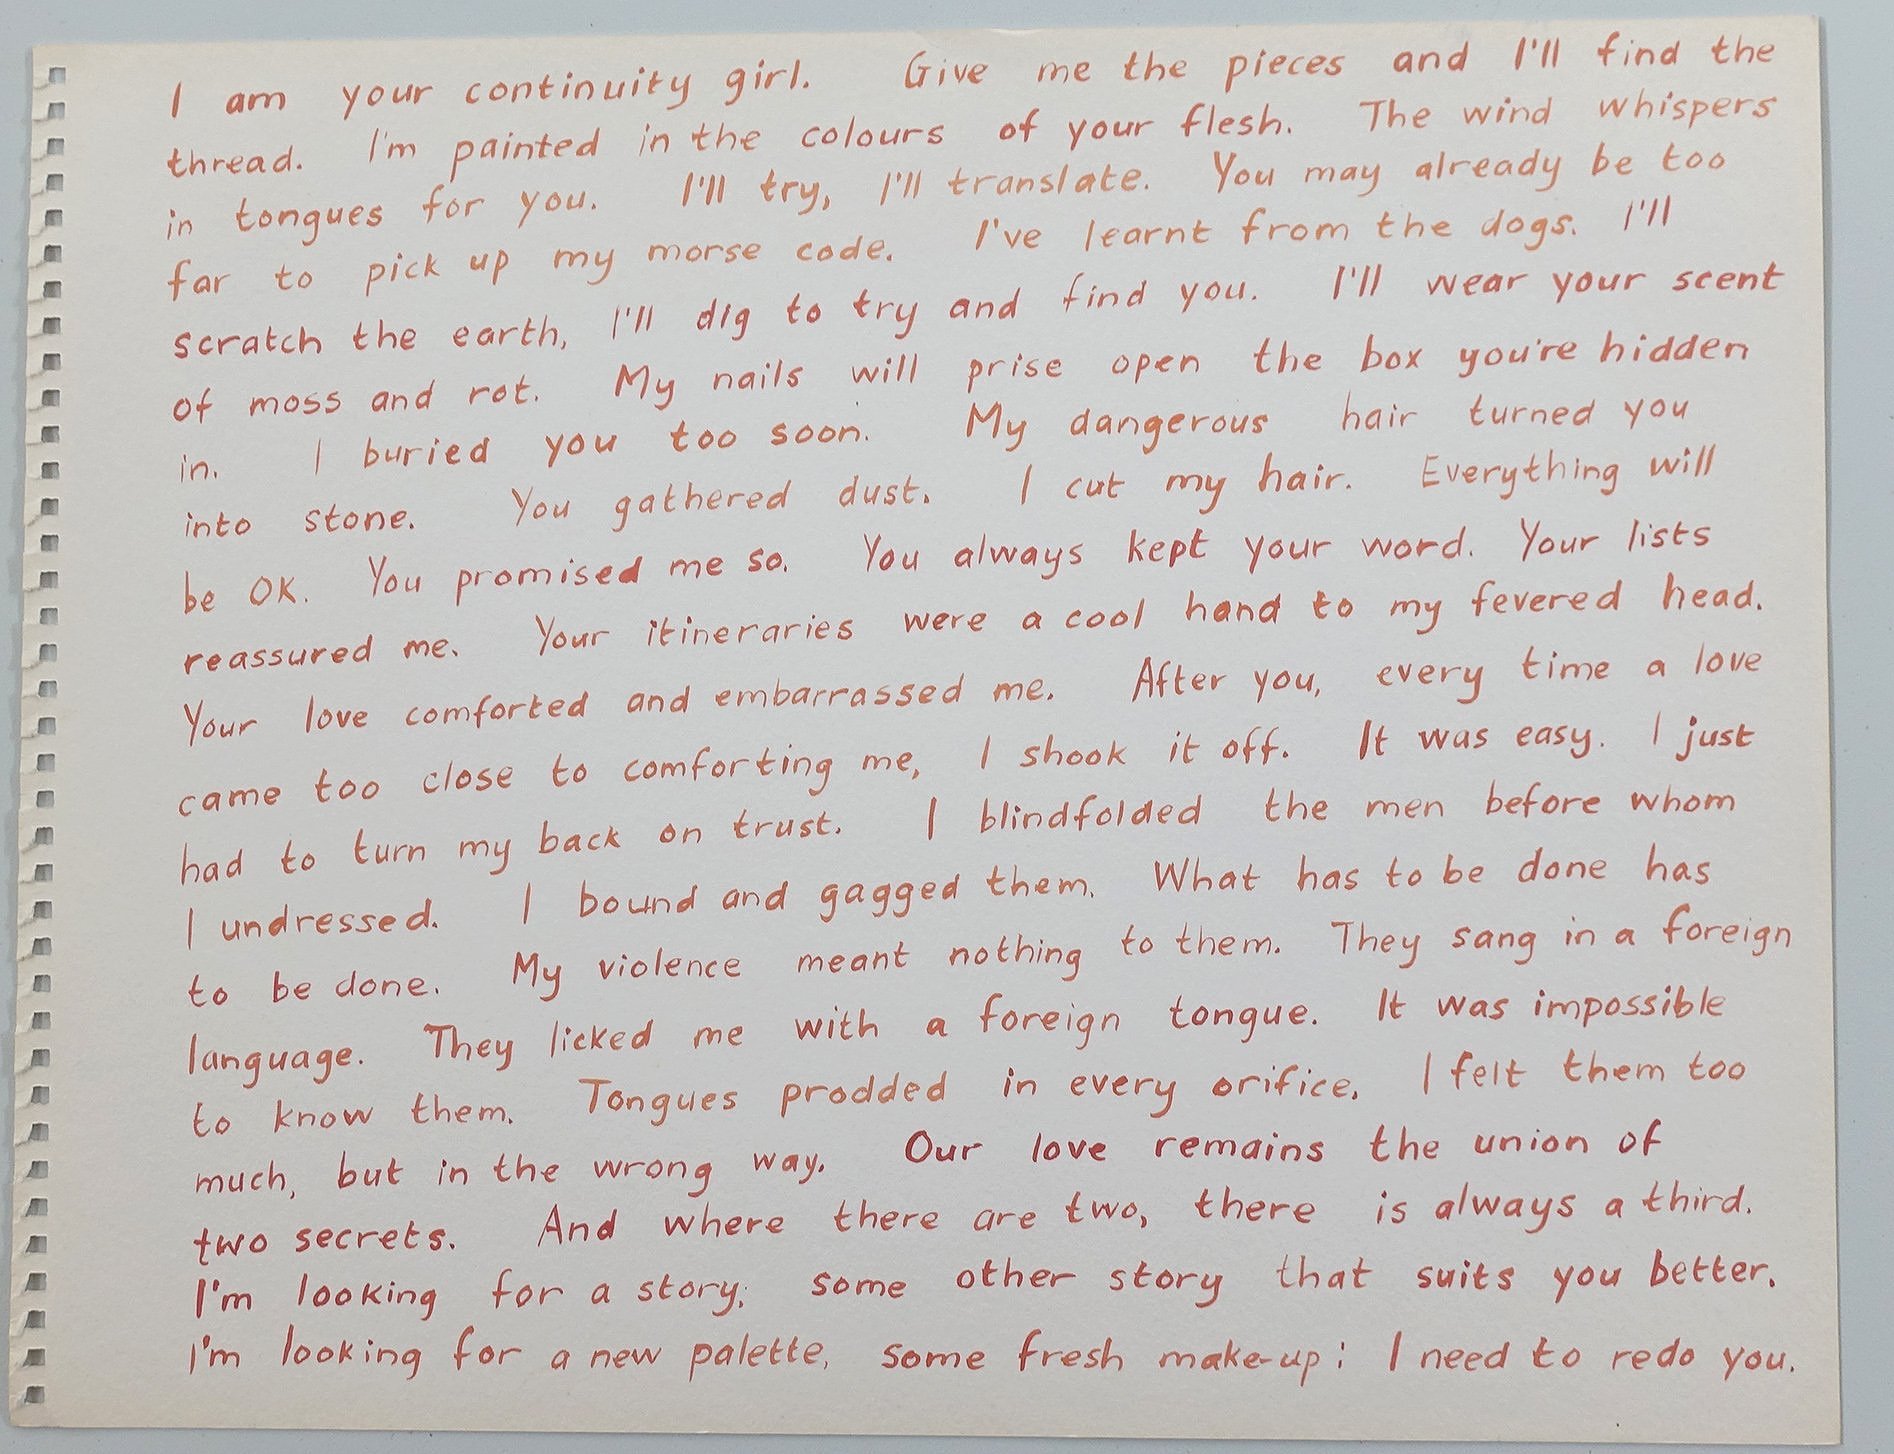 I am your continuity girl. Give me the pieces and I'll find the
thread. I'm painted in the colours of your flesh. The wind whispers
in tongues for you. I'll try, I'll translate. You may already be too
far to pick up my morse code. I've learnt from the dogs. I'll
scratch the earth, I'll dig to try and find you. I'll wear your scent
of moss and rot. My nails will prise open the box you're hidden
in. I buried you too soon. My dangerous hair turned you
into stone. You gathered dust. I cut my hair. Everything will
be OK. You promised me so. You always kept your word. Your lists
reassured me. Your itineraries were a cool hand to my fevered head.
Your love comforted and embarrassed me. After you, every time a love
came too close to comforting me, I shook it off. It was easy. I just
had to turn my back on trust. I blindfolded the men before whom
I undressed. I bound and gagged them. What has to be done has
to be done. My violence meant nothing to them. They sang in a foreign
language. They licked me with a foreign tongue. It was impossible
to know them. Tongues prodded in every orifice. I felt them too
much, but in the wrong way. Our love remains the union of
two secrets. And where there are two, there is always a third.
I'm looking for a story; some other story that suits you better.
I'm looking for a new palette, some fresh make-up; I need to redo you.